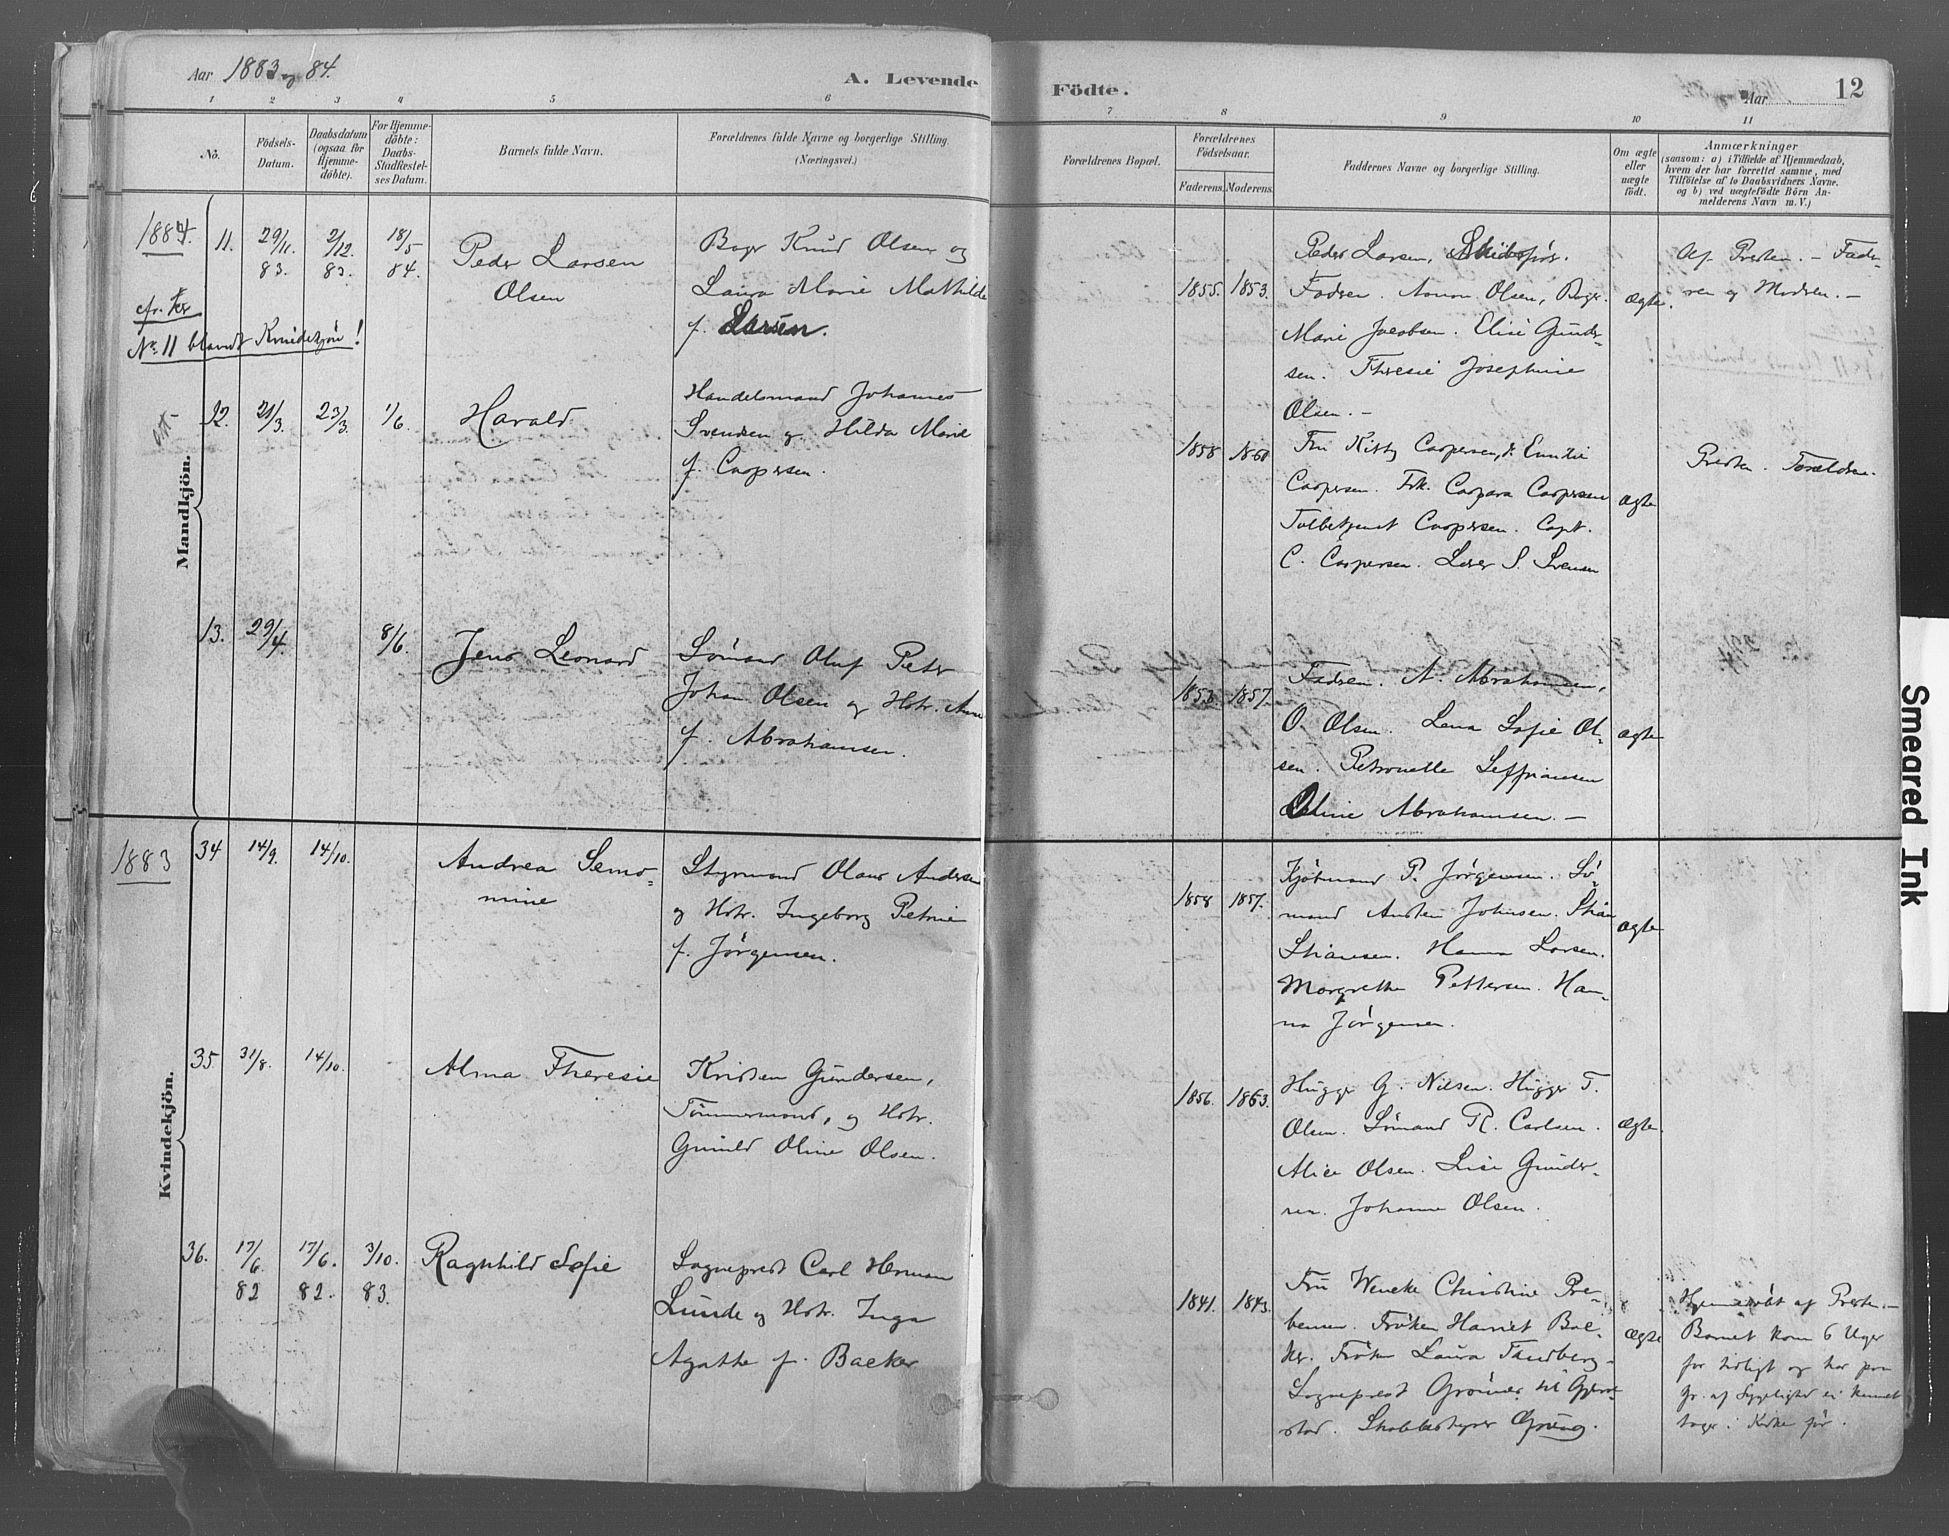 Aar 1883 og 84.
A. Levende
Födte.
Aar
12
1 2 3 4 5 6
7 8 9 10 11
No.
Födsels-
Datum.
Daabsdatum
(ogsaa for
Hjemme-
döbte).
For Hjemme-
döbte:
Daabs-
Stadfæstel-
ses Datum.
Barnets fulde Navn.
Forældrenes fulde Navne og borgerlige Stilling.
(Næringsvei.)
Forældrenes Bopæl.
Forældrenes
Födselsaar.
Faderens.
Moderens.
Faddernes Navne og borgerlige Stilling.
Om ægte
eller
uægte
födt.
Anmærkninger
(saasom: a) i Tilfælde af Hjemmedaab,
hvem der har forrettet samme, med
Tilföielse af to Daabsvidners Navne.
og b) ved uægtefödte Börn An-
melderens Navn m. V.)
Mandkjön.
1884.
11.
29/11.
83.
2/12.
83.
18/5
84.
Peder Larsen
Olsen
Bager Knud Olsen og
Laura Marie Mathilde
f. Larsen.
1855. 1853.
Peder Larsen, Skibsfør.
Fadren. Aanon Olsen, Bager.
Marie Jacobsen. Elise Gunder-
sen. Theresie Josephine
Olsen. -
ægte.
Af Presten. - Fade-
ren og Modren. -
No 11 blandt Kvindekjøn!
12.
21/3.
23/3.
1/6.
Harald
Handelsmand Johannes
Svendsen og Hilda Marie
f. Caspersen.
1858 1860
Fru Kitty Caspersen, Emilie
Caspersen. Frk. Caspara Caspersen
Toldbetjent Caspersen. Capt.
C. Caspersen. S. Svensen
ægte
Presten. Forældrene.
13.
29/4
8/6.
Jens Leonard
Sömand Oluf Peter
Johan Olsen og Hstr. Anne
f. Abrahamsen
1853 1857.
Fadren. A. Abrahamsen,
O. Olsen. Lena Sofie Ol-
sen. Petronelle Seffriansen
Oline Abrahamsen. -
ægte
Kvindekjön.
1883
34
14/9.
14/10.
Andrea Semo-
mine
Styrmand Olaus Andersen
og Hstr. Ingeborg Petrine
f. Jörgensen.
1858 1857.
Kjöbmand P. Jörgensen. Sö-
mand Austen Johnsen. Stian
Stiansen. Hanna Larsen.
Margrethe Pettersen. Han-
na Jörgensen.
ægte
35
31/8.
14/10.
Alma Theresie
Kristen Gundersen,
Tömmermand, og Hstr.
Gunild Oline Olsen.
1856. 1863.
Hugger G. Nilsen. Hugger T.
Olsen. Sömand R. Carlsen.
Alice Olsen. Lise Gunder-
sen. Johanne Olsen.
ægte.
36.
17/6.
82
17/6.
82.
3/10.
83.
Ragnhild Sofie
Sogneprest Carl Herman
Lunde og Hstr. Inga
Agathe f. Backer
1841. 1843.
Fru Wencke Christine Pre-
bensen. Fröken Harriet Bac-
ker. Fröken Laura Tandberg.
Sogneprest Grönner til Gjerre-
stad. Skolebestyrer Gröneg.
ægte
Hjemmedöbt af Presten. -
Barnet kom 6 Uger
for tidligt og har paa
Gr. af Sygelighed ei kunnet
tages i Kirke för.
Smeared Ink